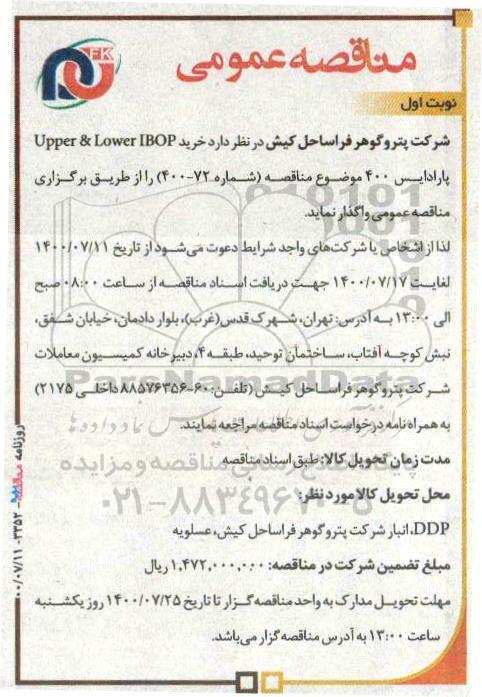 FK
مناقصه عمومی
نوبت اول
شرکت پتروگوهر فراساحل کیش در نظر دارد خرید Upper & Lower IBOP
پارادایس ۴۰۰ موضوع مناقصه (شماره ۷۲-۴۰۰) را از طریق برگزاری
مناقصه عمومی واگذار نماید.
لذا از اشخاص یا شرکت‌های واجد شرایط دعوت می‌شود از تاریخ ۱۴۰۰/۰۷/۱۱
لغایت ۱۴۰۰/۰۷/۱۷ جهت دریافت اسناد مناقصه از ساعت ۰۸:۰۰ صبح
الی ۱۳:۰۰ به آدرس: تهران، شهرک قدس(غرب)، بلوار دادمان، خیابان شفق،
نبش کوچه آفتاب، ساختمان توحید، طبقه ۴، دبیرخانه کمیسیون معاملات
شرکت پتروگوهر فراساحل کیش (تلفن: ۶۰-۸۸۵۷۶۳۵۶ داخلی ۲۱۷۵)
به همراه نامه درخواست اسناد مناقصه مراجعه نمایند.
مدت زمان تحویل کالا: طبق اسناد مناقصه
محل تحویل کالا مورد نظر:
DDP، انبار شرکت پتروگوهر فراساحل کیش، عسلویه
مبلغ تضمین شرکت در مناقصه: ۱,۴۷۲,۰۰۰,۰۰۰ ریال
مهلت تحویل مدارک به واحد مناقصه‌گزار تا تاریخ ۱۴۰۰/۰۷/۲۵ روز یکشنبه
ساعت ۱۳:۰۰ به آدرس مناقصه‌گزار می‌باشد.
روزنامه مناقصه ۳۳۵۲- ۰۰/۰۷/۱۱
ParsNamadData
۰۲۱-۸۸۳۴۹۶۷۰-۵